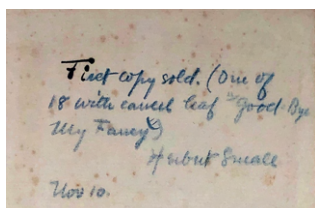 First copy sold. (One of
18 with cancel leaf "Good-Bye
My Fancy")
Herbert Small
Nov 10.